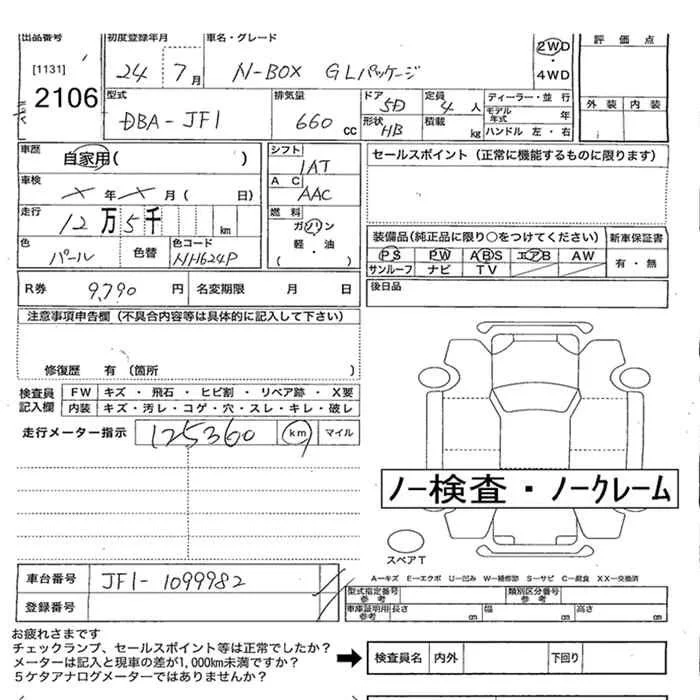 出品番号 初度登録年月 車名・グレード 2WD ・ 4WD 評価点
[1131] 2106 24 7月 N-BOX GLパッケージ 外装 内装
型式 排気量 ドア 5D 定員 4人 ディーラー・並行
DBA-JF1 660cc 形状 HB 積載 kg モデル年式 年
ハンドル 左・右
車歴 自家用( ) シフト 1AT セールスポイント(正常に機能するものに限ります)
車検 ×年×月( 日) AC AAC
走行 12万5千 km 燃料 ガソリン
軽・油
( )
色 パール 色替 色コード NH624P
装備品(純正品に限り○をつけてください) 新車保証書
PS PW ABS エアB AW 有・無
サンルーフ ナビ TV
R券 9,790円 名変期限 月 日 後日品
注意事項申告欄(不具合内容等は具体的に記入して下さい)
修復歴 有(箇所 )
検査員記入欄 FW キズ・飛石・ヒビ割・リペア跡・X要
内装 キズ・汚レ・コゲ・穴・スレ・キレ・破レ
走行メーター指示 125360 km マイル
ノー検査・ノークレーム
スペアT
A―キズ E―エクボ U―凹み W―補修跡 S―サビ C―腐食 XX―交換済
車台番号 JF1-1099982 型式指定番号 参考 類別区分番号 参考
登録番号 車庫証明用 参考 長さ cm 幅 cm 高さ cm
お疲れさまです
チェックランプ、セールスポイント等は正常でしたか?
メーターは記入と現車の差が1,000km未満ですか?
5ケタアナログメーターではありませんか?
検査員名 内外 下回り